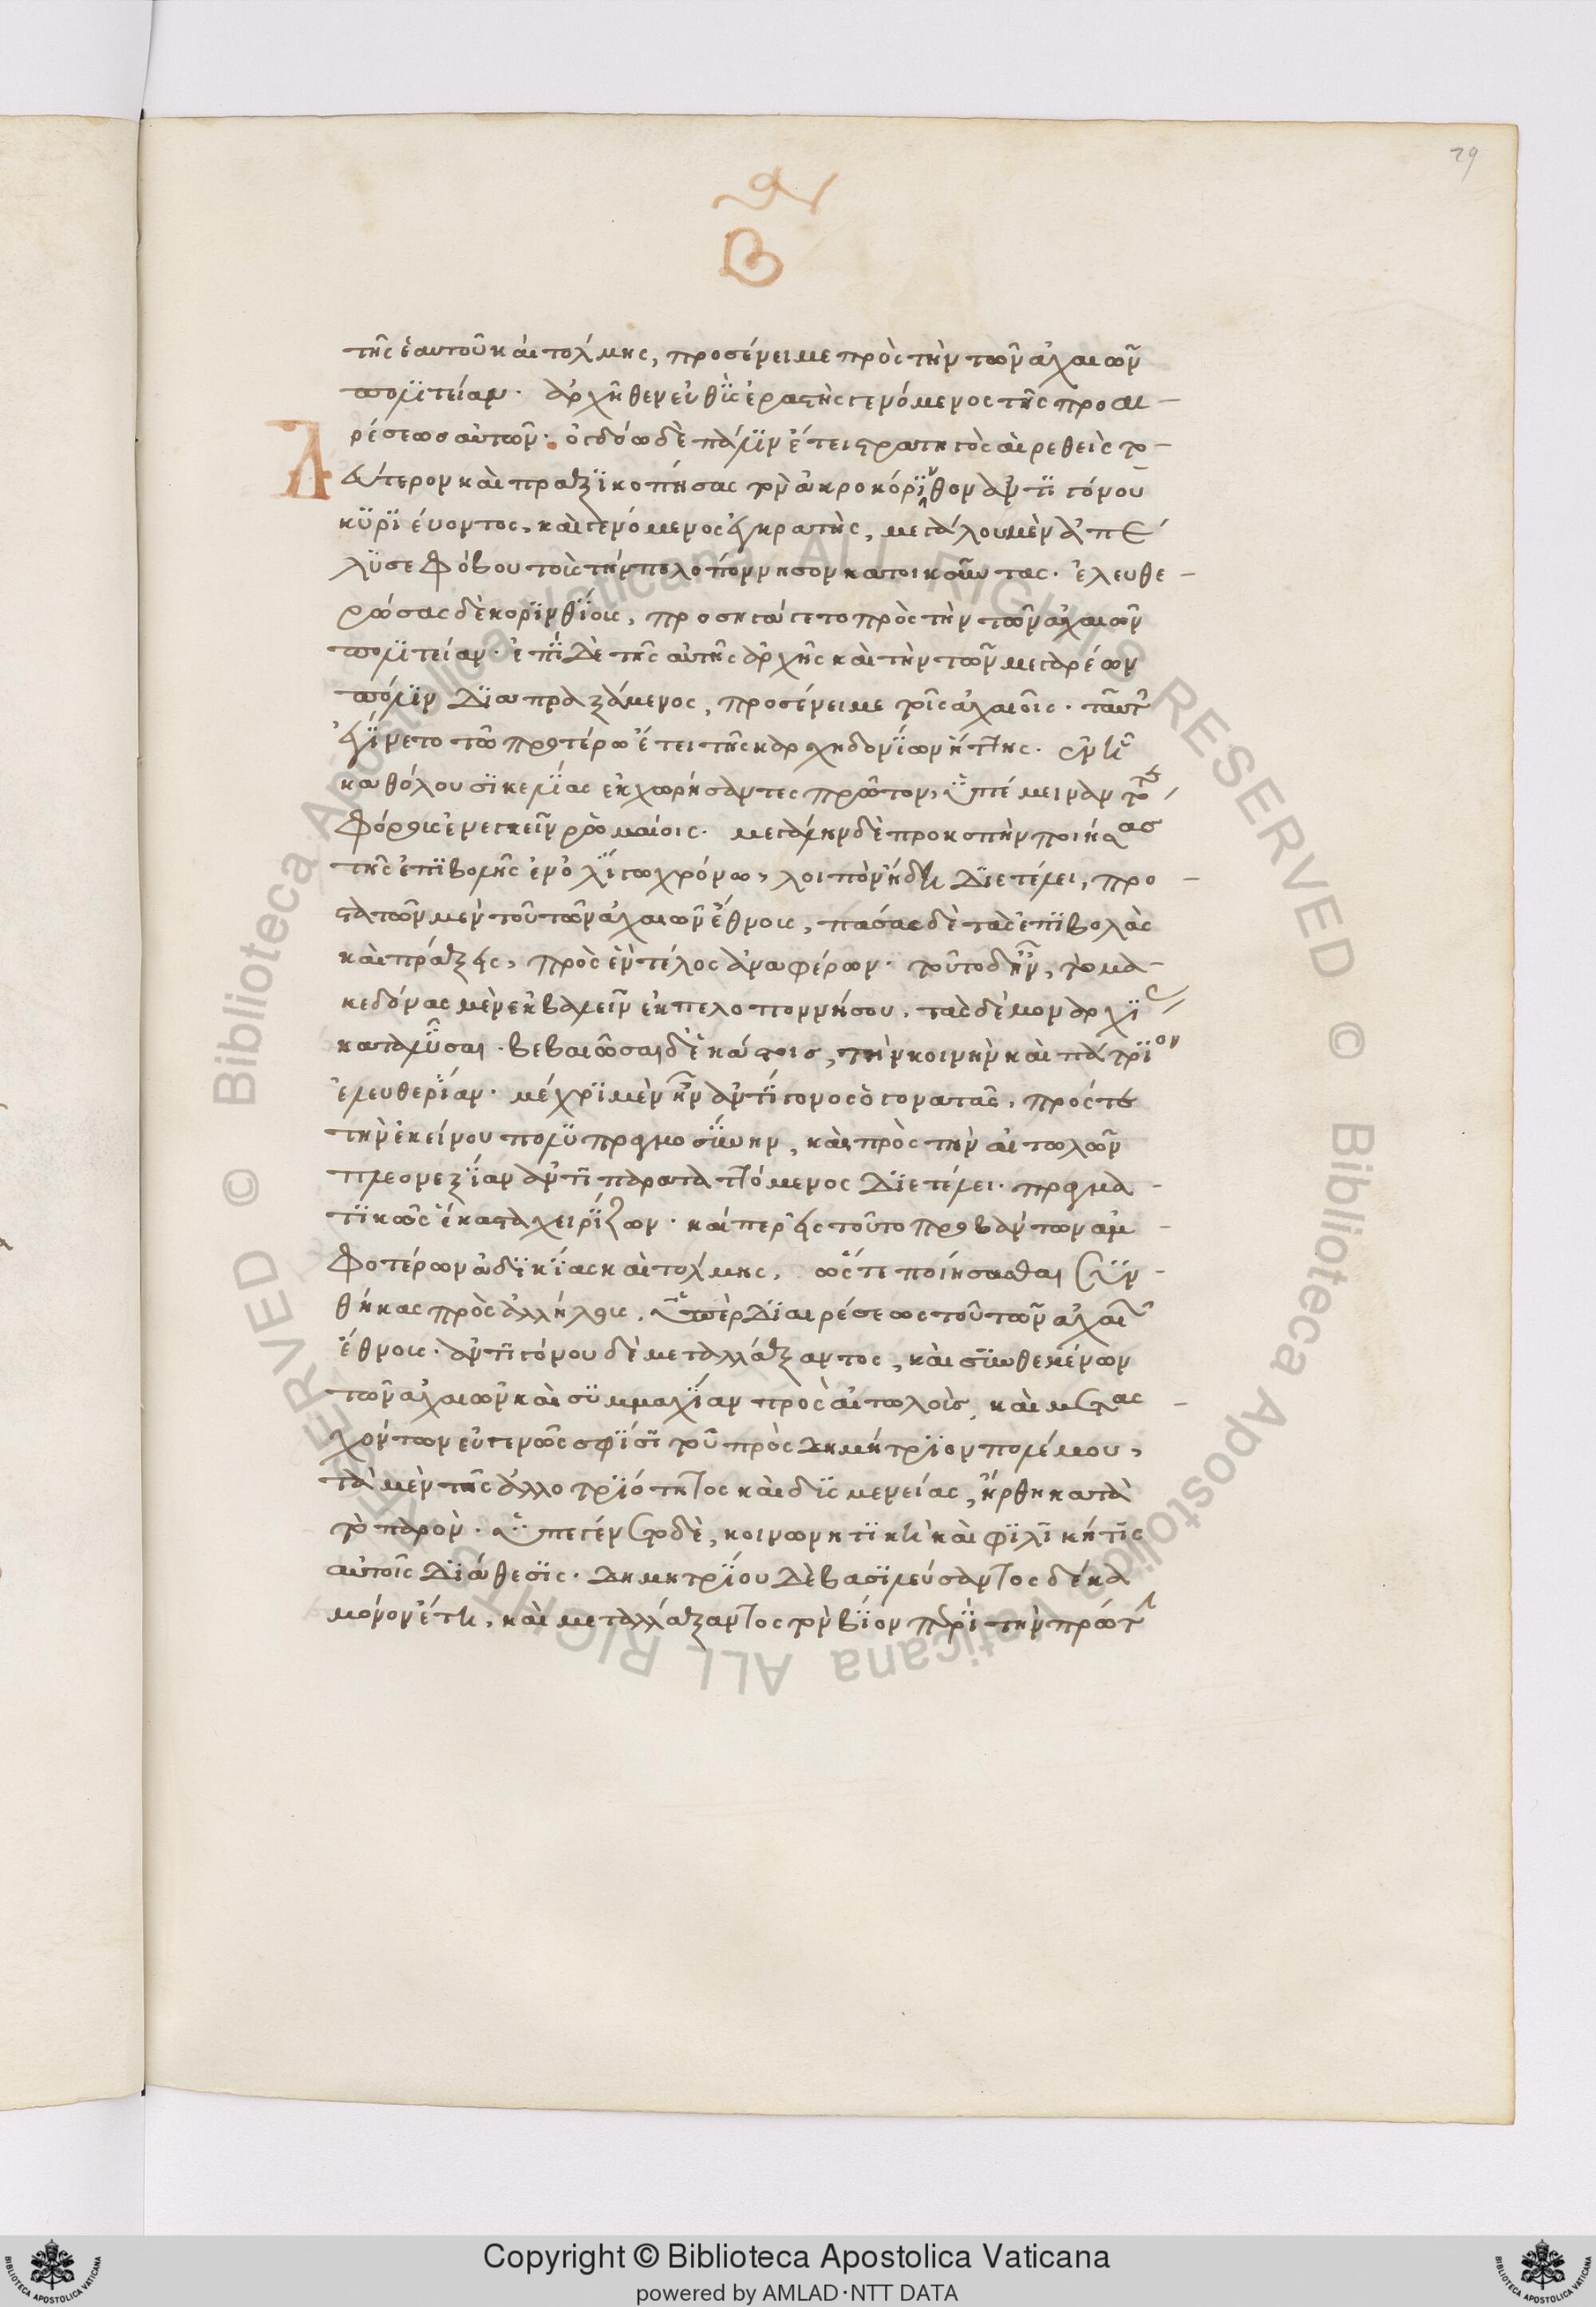 29
Β
τῆς ἑαυτοῦ καὶ τόλμης, προσένειμε πρὸς τὴν τῶν ἀχαιῶν
πολιτείαν· ἀρχῆθεν εὐθὺς ἐραστὴς γενόμενος τῆς προαι-
ρέσεως αὐτῶν· ὀγδόω δὲ πάλιν ἔτει στρατηγὸς αἱρεθεὶς το-
δεύτερον καὶ πραξικοπήσας τὸν ἀκροκόρινθον ἀντιγόνου
κυριεύοντος, καὶ γενόμενος ἐγκρατὴς, μεγάλου μὲν ἀπέ
λυσε φόβου τοὺς τὴν πελοπόννησον κατοικοῦντας· ἐλευθε-
ρώσας δὲ κορινθίους, προσηγάγετο πρὸς τὴν τῶν ἀχαιῶν
πολιτείαν· ἐπὶ δὲ τῆς αὐτῆς ἀρχῆς καὶ τὴν τῶν μεγαρέων
πόλιν διαπραξάμενος, προσένειμε τοῖς ἀχαιοῖς· ταῦτ
ἐγίνετο τῶ προτέρω ἔτει τῆς καρχηδονίων ἥττης· ἐν ἧ
καθόλου σικελίας ἐκχωρήσαντες πρῶτον, ὑπέμειναν τό
φόρους ἐνεγκεῖν ῥωμαίοις· μεγάλην δὲ προκοπὴν ποιήσας
τῆς ἐπιβολῆς ἐν ὀλίγω χρόνω, λοιπὸν ἤδη διετέλει, προ-
στατῶν μὲν τοῦ τῶν ἀχαιῶν ἔθνους, πάσας δὲ τὰς ἐπιβολὰς
καὶ πράξεις, πρὸς ἓν τέλος ἀναφέρων· τοῦτο δ' ἦν, τὸ μα-
κεδόνας μὲν ἐκβαλεῖν ἐκ πελοποννήσου, τὰς δὲ μοναρχί
καταλῦσαι· βεβαιῶσαι δ' ἑκάστοις, τὴν κοινὴν καὶ πάτριον
ἐλευθερίαν· μέχρι μὲν ἦν ἀντίγονος ὁ γονατᾶς, πρός τε
τὴν ἐκείνου πολυπραγμοσύνην, καὶ πρὸς τὴν αἰτωλῶν
πλεονεξίαν ἀντιπαραταττόμενος διετέλει· πραγμα-
τικῶς ἕκαστα χειρίζων· καίπερ εἰς τοῦτο προβάντων ἀμ-
φοτέρων ἀδικίας καὶ τόλμης, ὥστε ποιήσασθαι συν-
θήκας πρὸς ἀλλήλους, ὑπὲρ διαιρέσεως τοῦ τῶν ἀχαι
ἔθνους· ἀντιγόνου δὲ μεταλλάξαντος, καὶ συνθεμένων
τῶν ἀχαιῶν καὶ συμμαχίαν πρὸς αἰτωλοὺς, καὶ μετας-
χόντων εὐγενῶς σφίσι τοῦ πρὸς δημήτριον πολέμου,
τὰ μὲν τῆς ἀλλοτριότητος καὶ δυσμενείας, ἤρθη κατὰ
τὸ παρὸν· ὑπεγένετο δὲ, κοινωνικὴ καὶ φιλική τις
αὐτοῖς διάθεσις· δημητρίου δὲ βασιλεύσαντος δέκα
μόνον ἔτη, καὶ μεταλλάξαντος τὸν βίον περὶ τὴν πρώτ
© Biblioteca Apostolica Vaticana ALL RIGHTS RESERVED © Biblioteca Apostolica Vaticana ALL RIGHTS RESERVED
Copyright © Biblioteca Apostolica Vaticana
powered by AMLAD·NTT DATA